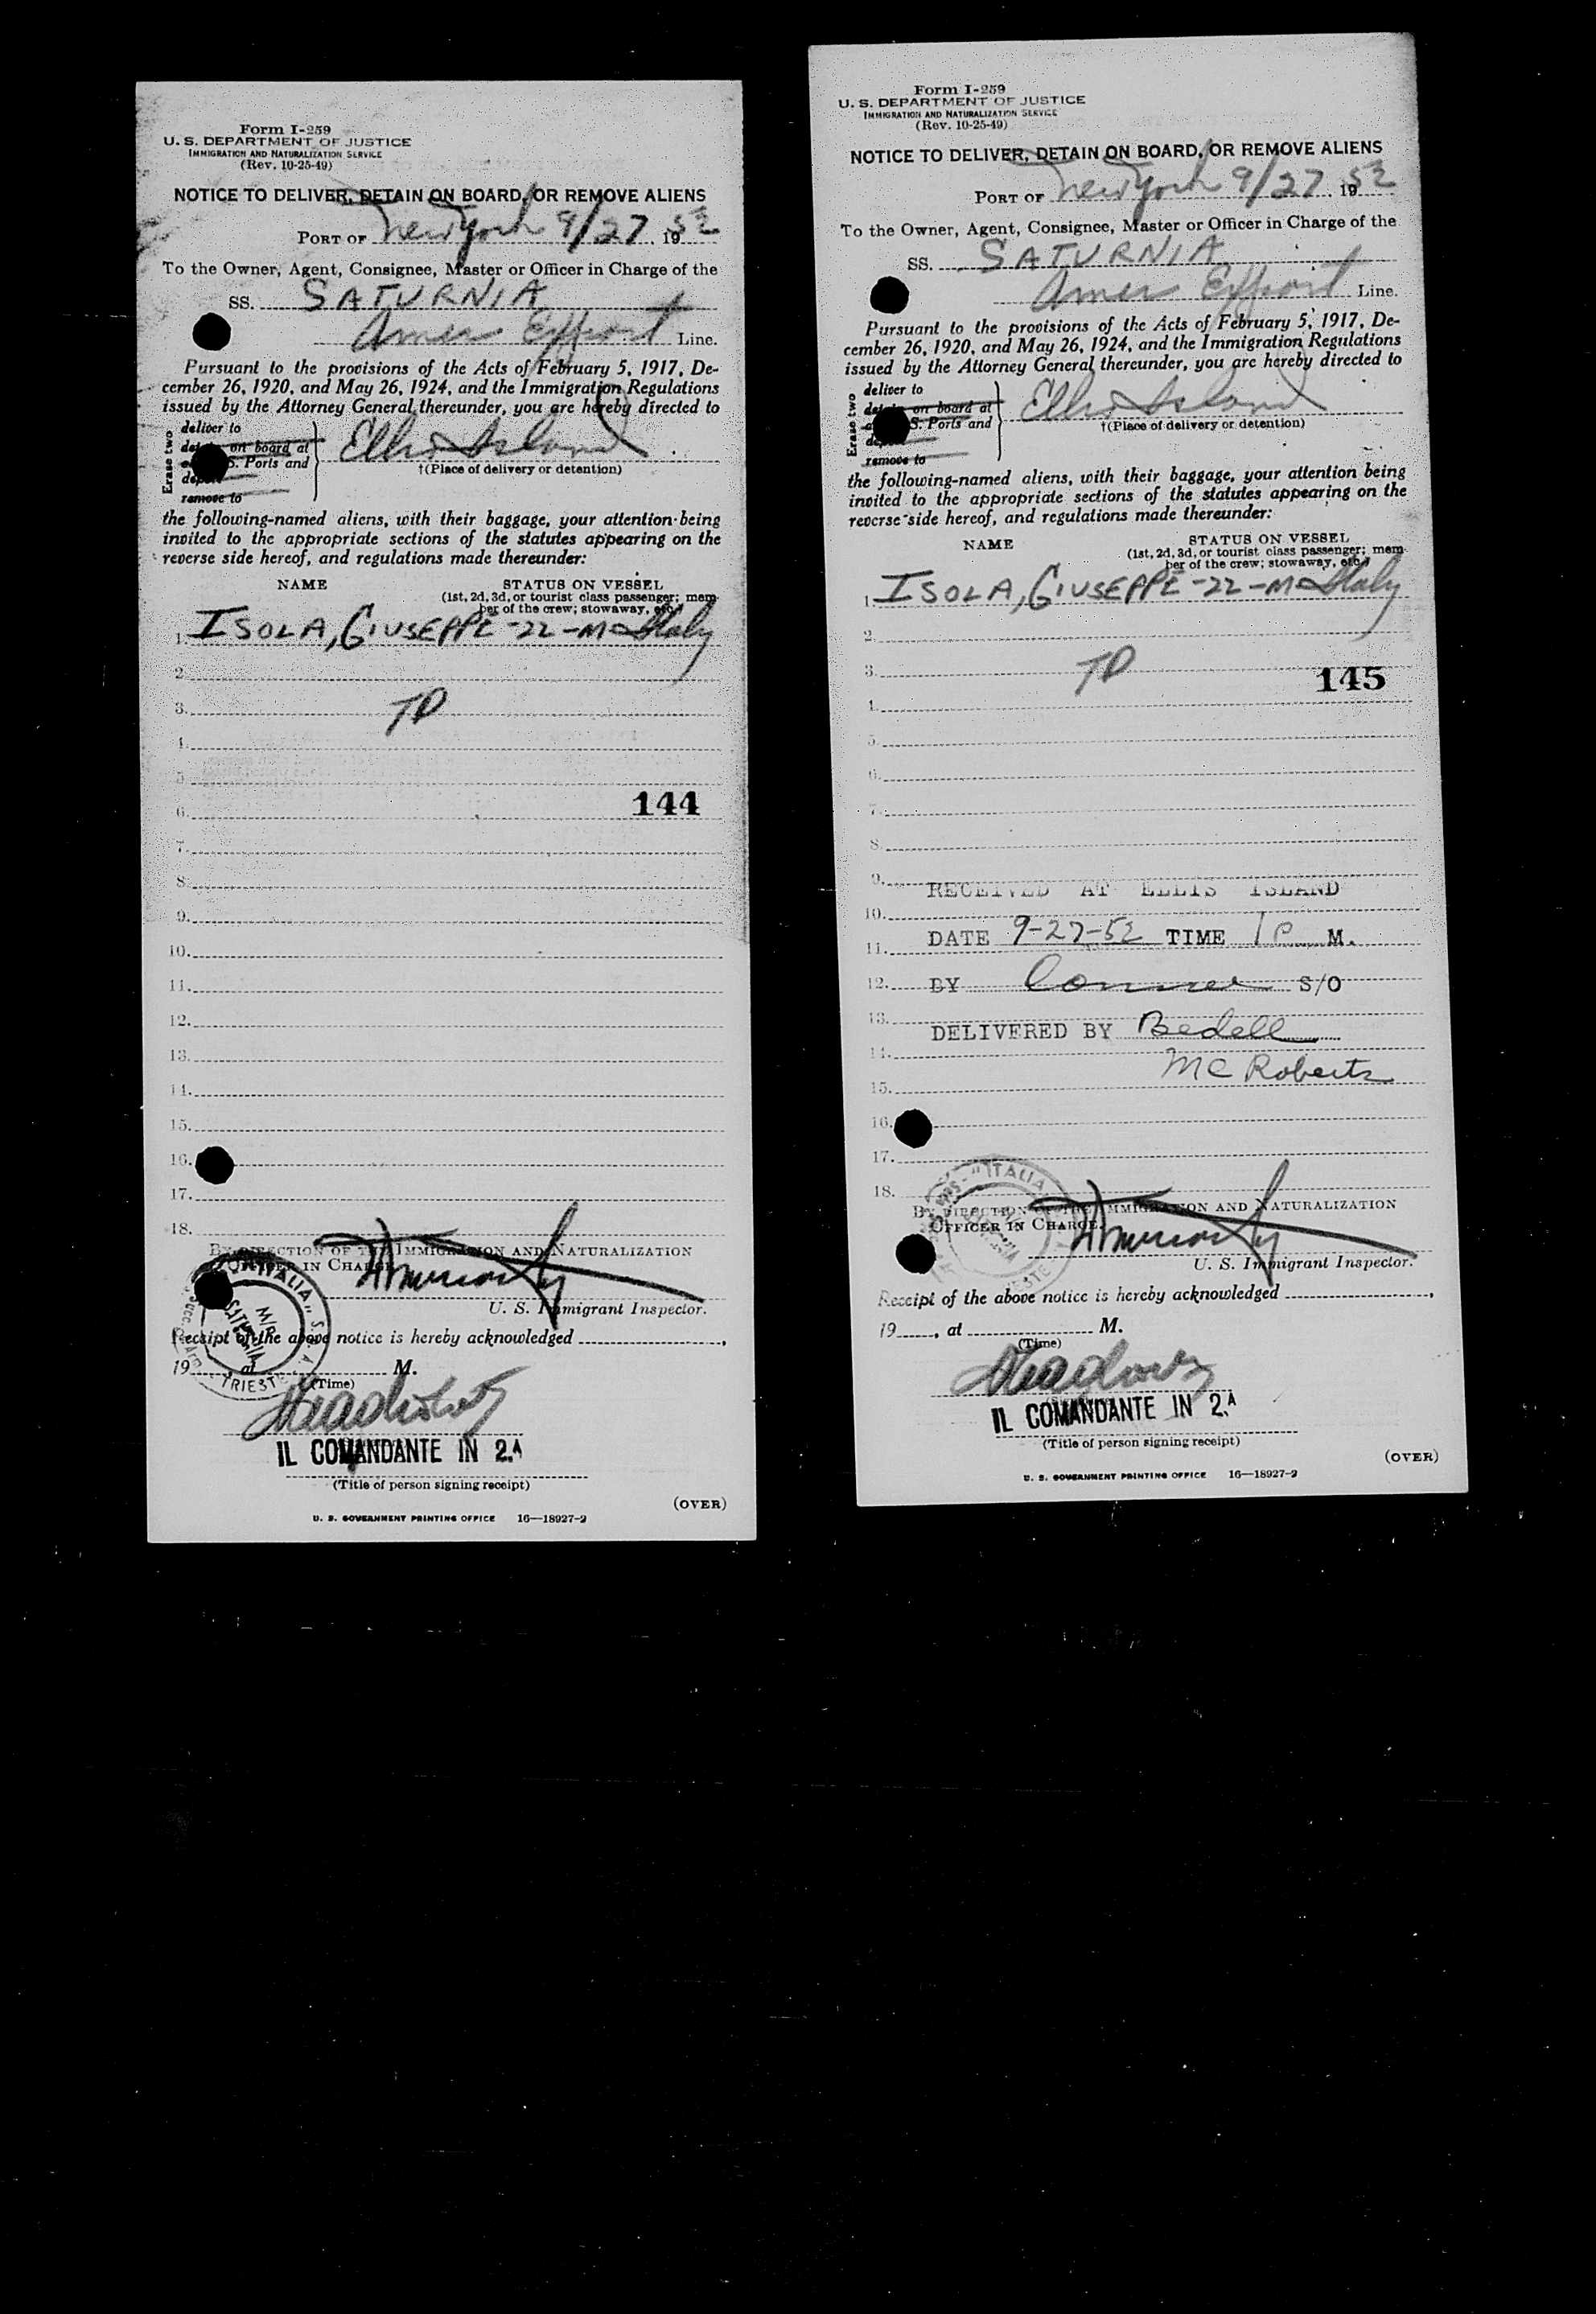 Form I-259
U. S. DEPARTMENT OF JUSTICE
IMMIGRATION AND NATURALIZATION SERVICE
(Rev. 10-25-49)
NOTICE TO DELIVER, DETAIN ON BOARD, OR REMOVE ALIENS
PORT OF New York 9/27 1952
To the Owner, Agent, Consignee, Master or Officer in Charge of the
SS. SATURNIA
Amer Export Line.
Pursuant to the provisions of the Acts of February 5, 1917, De-
cember 26, 1920, and May 26, 1924, and the Immigration Regulations
issued by the Attorney General thereunder, you are hereby directed to
Erase two
deliver to
on board at Ellis Island
S. Ports and †(Place of delivery or detention)
remove to
the following-named aliens, with their baggage, your attention being
invited to the appropriate sections of the statutes appearing on the
reverse side hereof, and regulations made thereunder:
NAME STATUS ON VESSEL
(1st, 2d, 3d, or tourist class passenger; mem-
ber of the crew; stowaway, etc.)
1. ISOLA, GIUSEPPE -22-M- Italy
2.
3. TD
4.
5.
6. 144
7.
8.
9.
10.
11.
12.
13.
14.
15.
16.
17.
18.
BY DIRECTION OF THE IMMIGRATION AND NATURALIZATION
OFFICER IN CHARGE
U. S. Immigrant Inspector.
"ITALIA" S. A.
M/N
SATURNIA
TRIESTE
Receipt of the above notice is hereby acknowledged
19 at M.
(Time)
IL COMANDANTE IN 2.A
(Title of person signing receipt)
(OVER)
U. S. GOVERNMENT PRINTING OFFICE 16—18927-2
Form I-259
U. S. DEPARTMENT OF JUSTICE
IMMIGRATION AND NATURALIZATION SERVICE
(Rev. 10-25-49)
NOTICE TO DELIVER, DETAIN ON BOARD, OR REMOVE ALIENS
PORT OF New York 9/27 1952
To the Owner, Agent, Consignee, Master or Officer in Charge of the
SS. SATURNIA
Amer Export Line.
Pursuant to the provisions of the Acts of February 5, 1917, De-
cember 26, 1920, and May 26, 1924, and the Immigration Regulations
issued by the Attorney General thereunder, you are hereby directed to
Erase two
deliver to
on board at Ellis Island
S. Ports and †(Place of delivery or detention)
remove to
the following-named aliens, with their baggage, your attention being
invited to the appropriate sections of the statutes appearing on the
reverse side hereof, and regulations made thereunder:
NAME STATUS ON VESSEL
(1st, 2d, 3d, or tourist class passenger; mem-
ber of the crew; stowaway, etc.)
1. ISOLA, GIUSEPPE -22-M- Italy
2.
3. TD 145
4.
5.
6.
7.
8.
9. RECEIVED AT ELLIS ISLAND
10.
11. DATE 9-27-52 TIME 1 P M.
12. BY S/O
13. DELIVERED BY Bedell
14. Mc Roberts
15.
16.
17.
18.
"ITALIA"
BY DIRECTION OF THE IMMIGRATION AND NATURALIZATION
OFFICER IN CHARGE.
U. S. Immigrant Inspector.
Receipt of the above notice is hereby acknowledged
19, at M.
(Time)
IL COMANDANTE IN 2.A
(Title of person signing receipt)
(OVER)
U. S. GOVERNMENT PRINTING OFFICE 16—18927-2